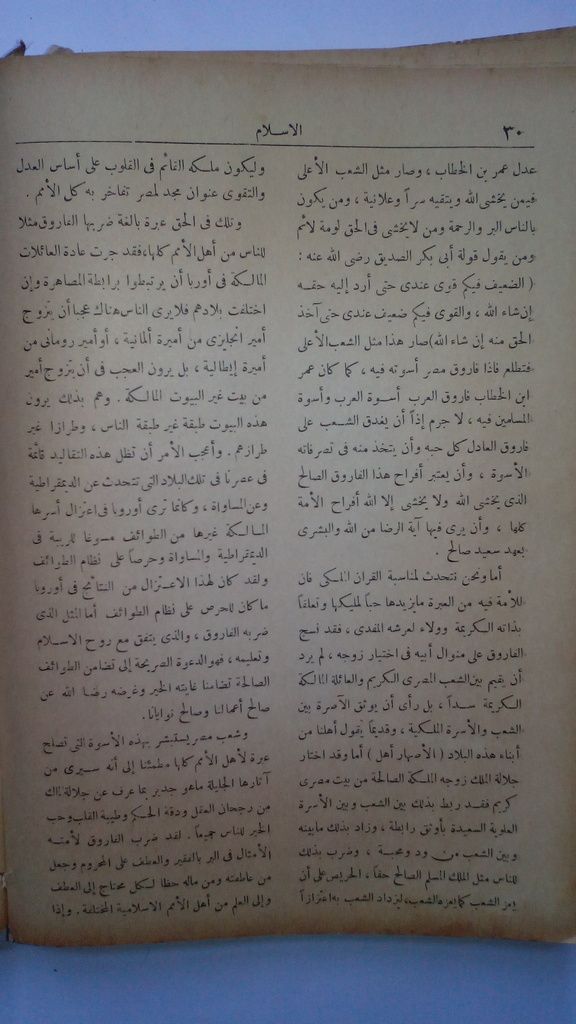 ٣٠
الاسلام
عدل عمر بن الخطاب ، وصار مثل الشعب الأعلى
فيمن يخشى الله ويتقيه سراً وعلانية ، ومن يكون
بالناس البر والرحمة ومن لايخشى فى الحق لومة لائم
ومن يقول قولة أبى بكر الصديق رضى الله عنه :
( الضعيف فيكم قوى عندى حتى أرد إليه حقه
إن شاء الله ، والقوى فيكم ضعيف عندى حتى آخذ
الحق منه إن شاء الله) صار هذا مثل الشعب الأعلى
فتطلع فاذا فاروق مصر أسوته فيه ، كما كان عمر
ابن الخطاب فاروق العرب أسوة العرب وأسوة
المسلمين فيه ، لا جرم إذاً أن يغدق الشعب على
فاروق العادل كل حبه وأن يتخذ منه فى تصرفاته
الأسوة ، وأن يعتبر أفراح هذا الفاروق الصالح
الذى يخشى الله ولا يخشى إلا الله أفراح الأمة
كلها ، وأن يرى فيها آية الرضا من الله والبشرى
بعهد سعيد صالح .
أما ونحن نتحدث لمناسبة القران الملكى فان
للأمة فيه من العبرة مايزيدها حباً لمليكها وتعلقاً
بذاته الكريمة وولاء لعرشه المفدى ، فقد نسج
الفاروق على منوال أبيه فى اختيار زوجه ، لم يرد
أن يقيم بين الشعب المصرى الكريم والعائلة المالكة
الكريمة سداً ، بل رأى أن يوثق الآصرة بين
الشعب والأسرة الملكية ، وقديماً يقول أهلنا من
أبناء هذه البلاد ( الأصهار أهل ) أما وقد اختار
جلالة الملك زوجه الملكة الصالحة من بيت مصرى
كريم فقد ربط بذلك بين الشعب وبين الأسرة
العلوية السعيدة بأوثق رابطة ، وزاد بذلك مابينه
وبين الشعب من ود ومحبة ، وضرب بذلك
للناس مثل الملك المسلم الصالح حقاً ، الحريص على أن
يعز الشعب كما يعزه الشعب، ليزداد الشعب به اعتزازاً
وليكون ملكه القائم فى القلوب على أساس العدل
والتقوى عنوان مجد لمصر تفاخر به كل الأمم .
وتلك فى الحق عبرة بالغة ضربها الفاروق مثلا
للناس من أهل الأمم كلها، فقد جرت عادة العائلات
المالكة فى أوربا أن يرتبطوا برابطة المصاهرة وإن
اختلفت بلادهم فلا يرى الناس هناك عجبا أن يتزوج
أمير انجليزى من أميرة ألمانية ، أو أمير رومانى من
أميرة إيطالية ، بل يرون العجب فى أن يتزوج أمير
من بيت غير البيوت المالكة . وهم بذلك يرون
هذه البيوت طبقة غير طبقة الناس ، وطرازا غير
طرازهم . وأعجب الأمر أن تظل هذه التقاليد قائمة
فى عصرنا فى تلك البلاد التى تتحدث عن الديمقراطية
وعن المساواة ، وكانما ترى أوروبا فى اعتزال أسرها
المالكة غيرها من الطوائف مسوغا للريبة فى
الديمقراطية والمساواة وحرصاً على نظام الطوائف
ولقد كان لهذا الاعتزال من النتائج فى أوروبا
ماكان للحرص على نظام الطوائف أما المثل الذى
ضربه الفاروق ، والذى يتفق مع روح الاسلام
وتعليمه ، فهو الدعوة الصريحة إلى تضامن الطوائف
الصالحة تضامنا غايته الخير وغرضه رضا الله عن
صالح أعمالنا وصالح نوايانا .
وشعب مصر يستبشر بهذه الأسوة التى تصلح
عبرة لأهل الأمم كلها مطمئنا إلى أنه سيرى من
آثارها الجليلة ماهو جدير بما عرف عن جلالة الملك
من رجحان العقل ودقة الحكم وطيبة القلب وحب
الخير للناس جميعاً . لقد ضرب الفاروق لأمته
الأمثال فى البر بالفقير والعطف على المحروم وجعل
من عاطفته ومن ماله حظا لكل محتاج إلى العطف
وإلى العلم من أهل الأمم الاسلامية المختلفة . وإذا